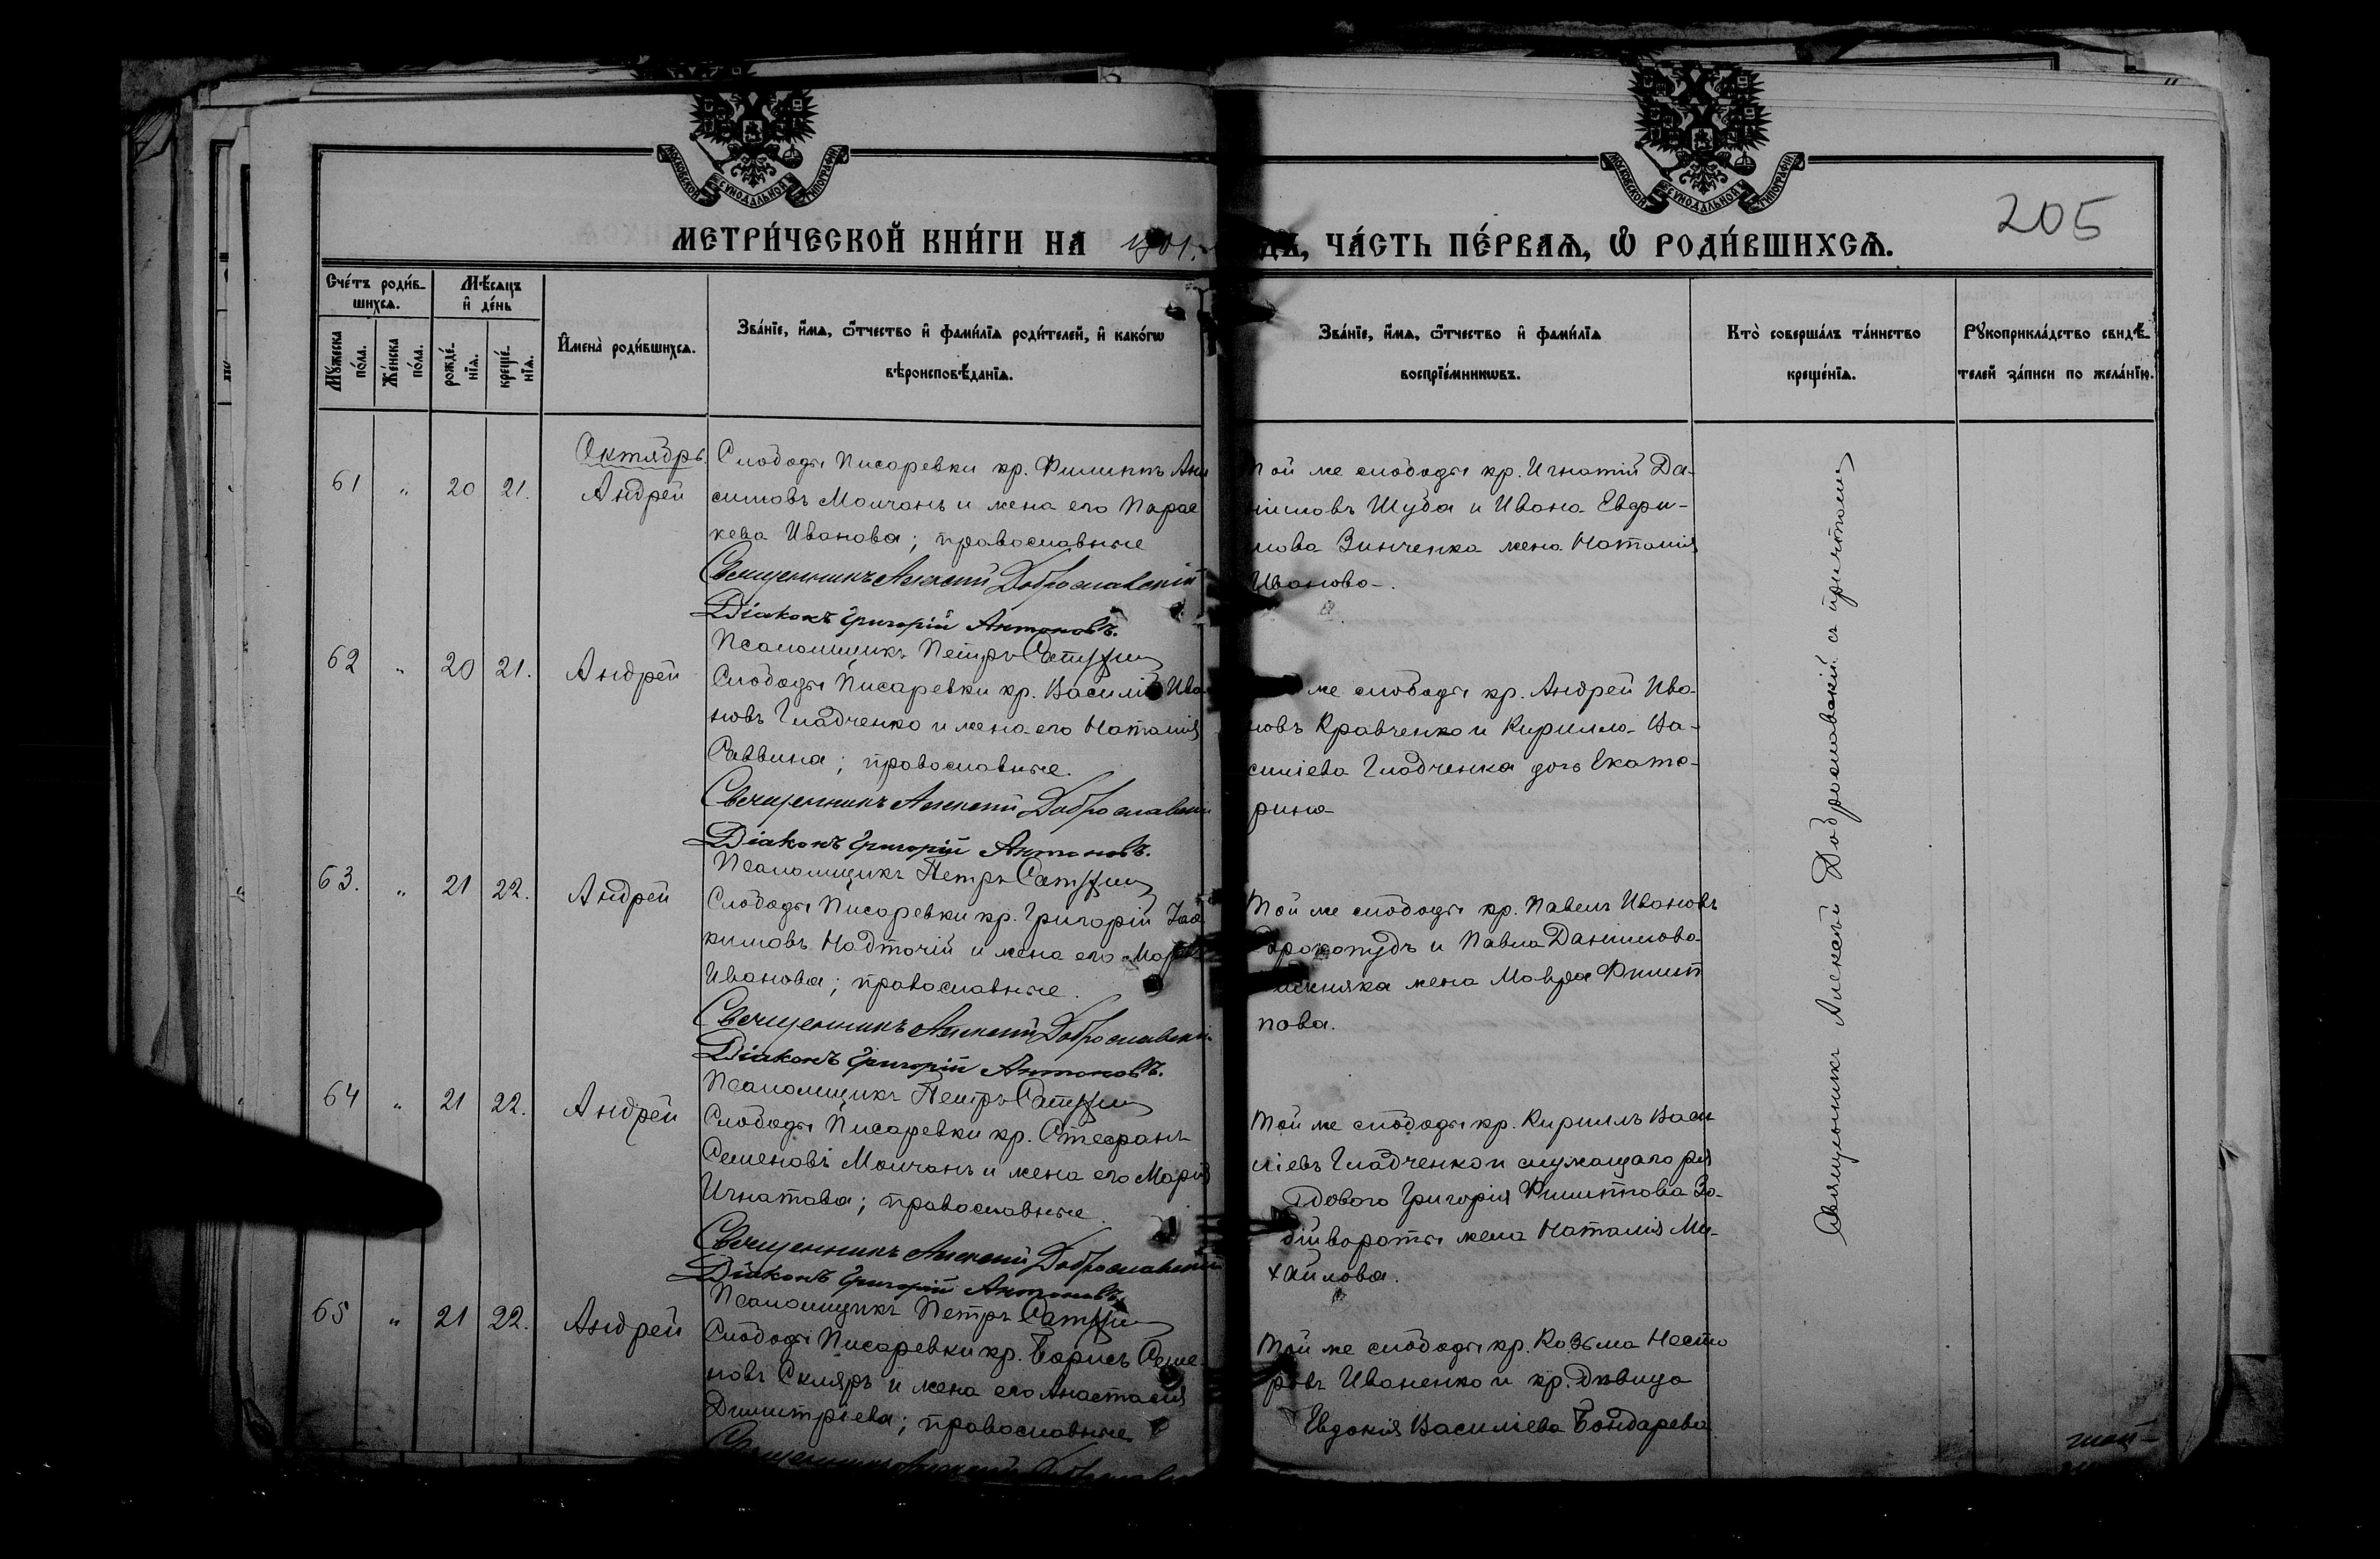 МОСКОВСКОЙ СУНОДАЛЬНОЙ ТИПОГРАФІИ
МОСКОВСКОЙ СУНОДАЛЬНОЙ ТИПОГРАФІИ
205
МЕТРИ́ЧЕСКОЙ КНИ́ГИ НА 1901
ДЪ, ЧА́СТЬ ПЕ́РВАѦ, Ѡ РОДИ́ВШИХСѦ.
Сче́тъ роди́в-
шихсѧ.
Мѣ́сѧцъ
и҆ де́нь
Мꙋ́жеска
по́ла.
Же́нска
по́ла.
рожде́-
нїѧ.
креще́-
нїѧ.
И҆мена̀ роди́вшихсѧ.
Зва́нїе, и҆́мѧ, ѻ҆́тчество и҆ фами́лїѧ роди́телей, и҆ како́гѡ
вѣроисповѣ́данїѧ.
Зва́нїе, и҆́мѧ, ѻ҆́тчество и҆ фами́лїѧ
воспрїе́мникѡвъ.
Кто̀ соверша́лъ та́инство
креще́нїѧ.
Рꙋкоприкла́дство свидѣ́-
телей за́писи по жела́нїю.
Октябрь.
61 " 20 21. Андрей
Слободы Писаревки кр. Филиппъ Ани
симовъ Молчанъ и жена его Парас
кева Иванова; православные
Священникъ Алексій Доброславскій
Діаконъ Григорій Антоновъ.
Псаломщикъ Петръ
Той же слободы кр. Игнатій Да-
ніиловъ Шуба и Ивана Евфи-
мова Зинченка жена Наталія
Иванова.
62 " 20 21. Андрей
Слободы Писаревки кр. Василій Ива
новъ Гладченко и жена его Наталія
Саввина; православные.
Священникъ Алексій Доброславскій
Діаконъ Григорій Антоновъ.
Псаломщикъ Петръ
же слободы кр. Андрей Ива-
новъ Кравченко и Кирилла Ва-
силіева Гладченка дочь Екате-
рина
63. " 21 22. Андрей
Слободы Писаревки кр. Григорій Іоа
кимовъ Надточій и жена его
Иванова; православные.
Священникъ Алексій Доброславскій
Діаконъ Григорій Антоновъ.
Псаломщикъ Петръ
Той же слободы кр. Павелъ Ивановъ
и Павла Даніилова
жена Мавра Филип
пова.
64 " 21 22. Андрей
Слободы Писаревки кр. Стефанъ
Семеновъ Молчанъ и жена его Марія
Игнатова; православные.
Священникъ Алексій Доброславскій
Діаконъ Григорій Антоновъ.
Псаломщикъ Петръ
Той же слободы кр. Кириллъ Васи
ліевъ Гладченко и служащаго ря
дового Григорія Филиппова За-
бійвороты жена Наталія Ми-
хайлова.
65 " 21 22. Андрей
Слободы Писаревки кр. Борисъ Семе
новъ Скляръ и жена его Анастасія
Димитріева; православные.
Священникъ Алексій Доброславскій
Той же слободы кр. Козьма Несто
ровъ Иваненко и кр. дѣвица
Евдокія Василіева Бондарева
Священникъ Алексій Доброславскій съ причтомъ